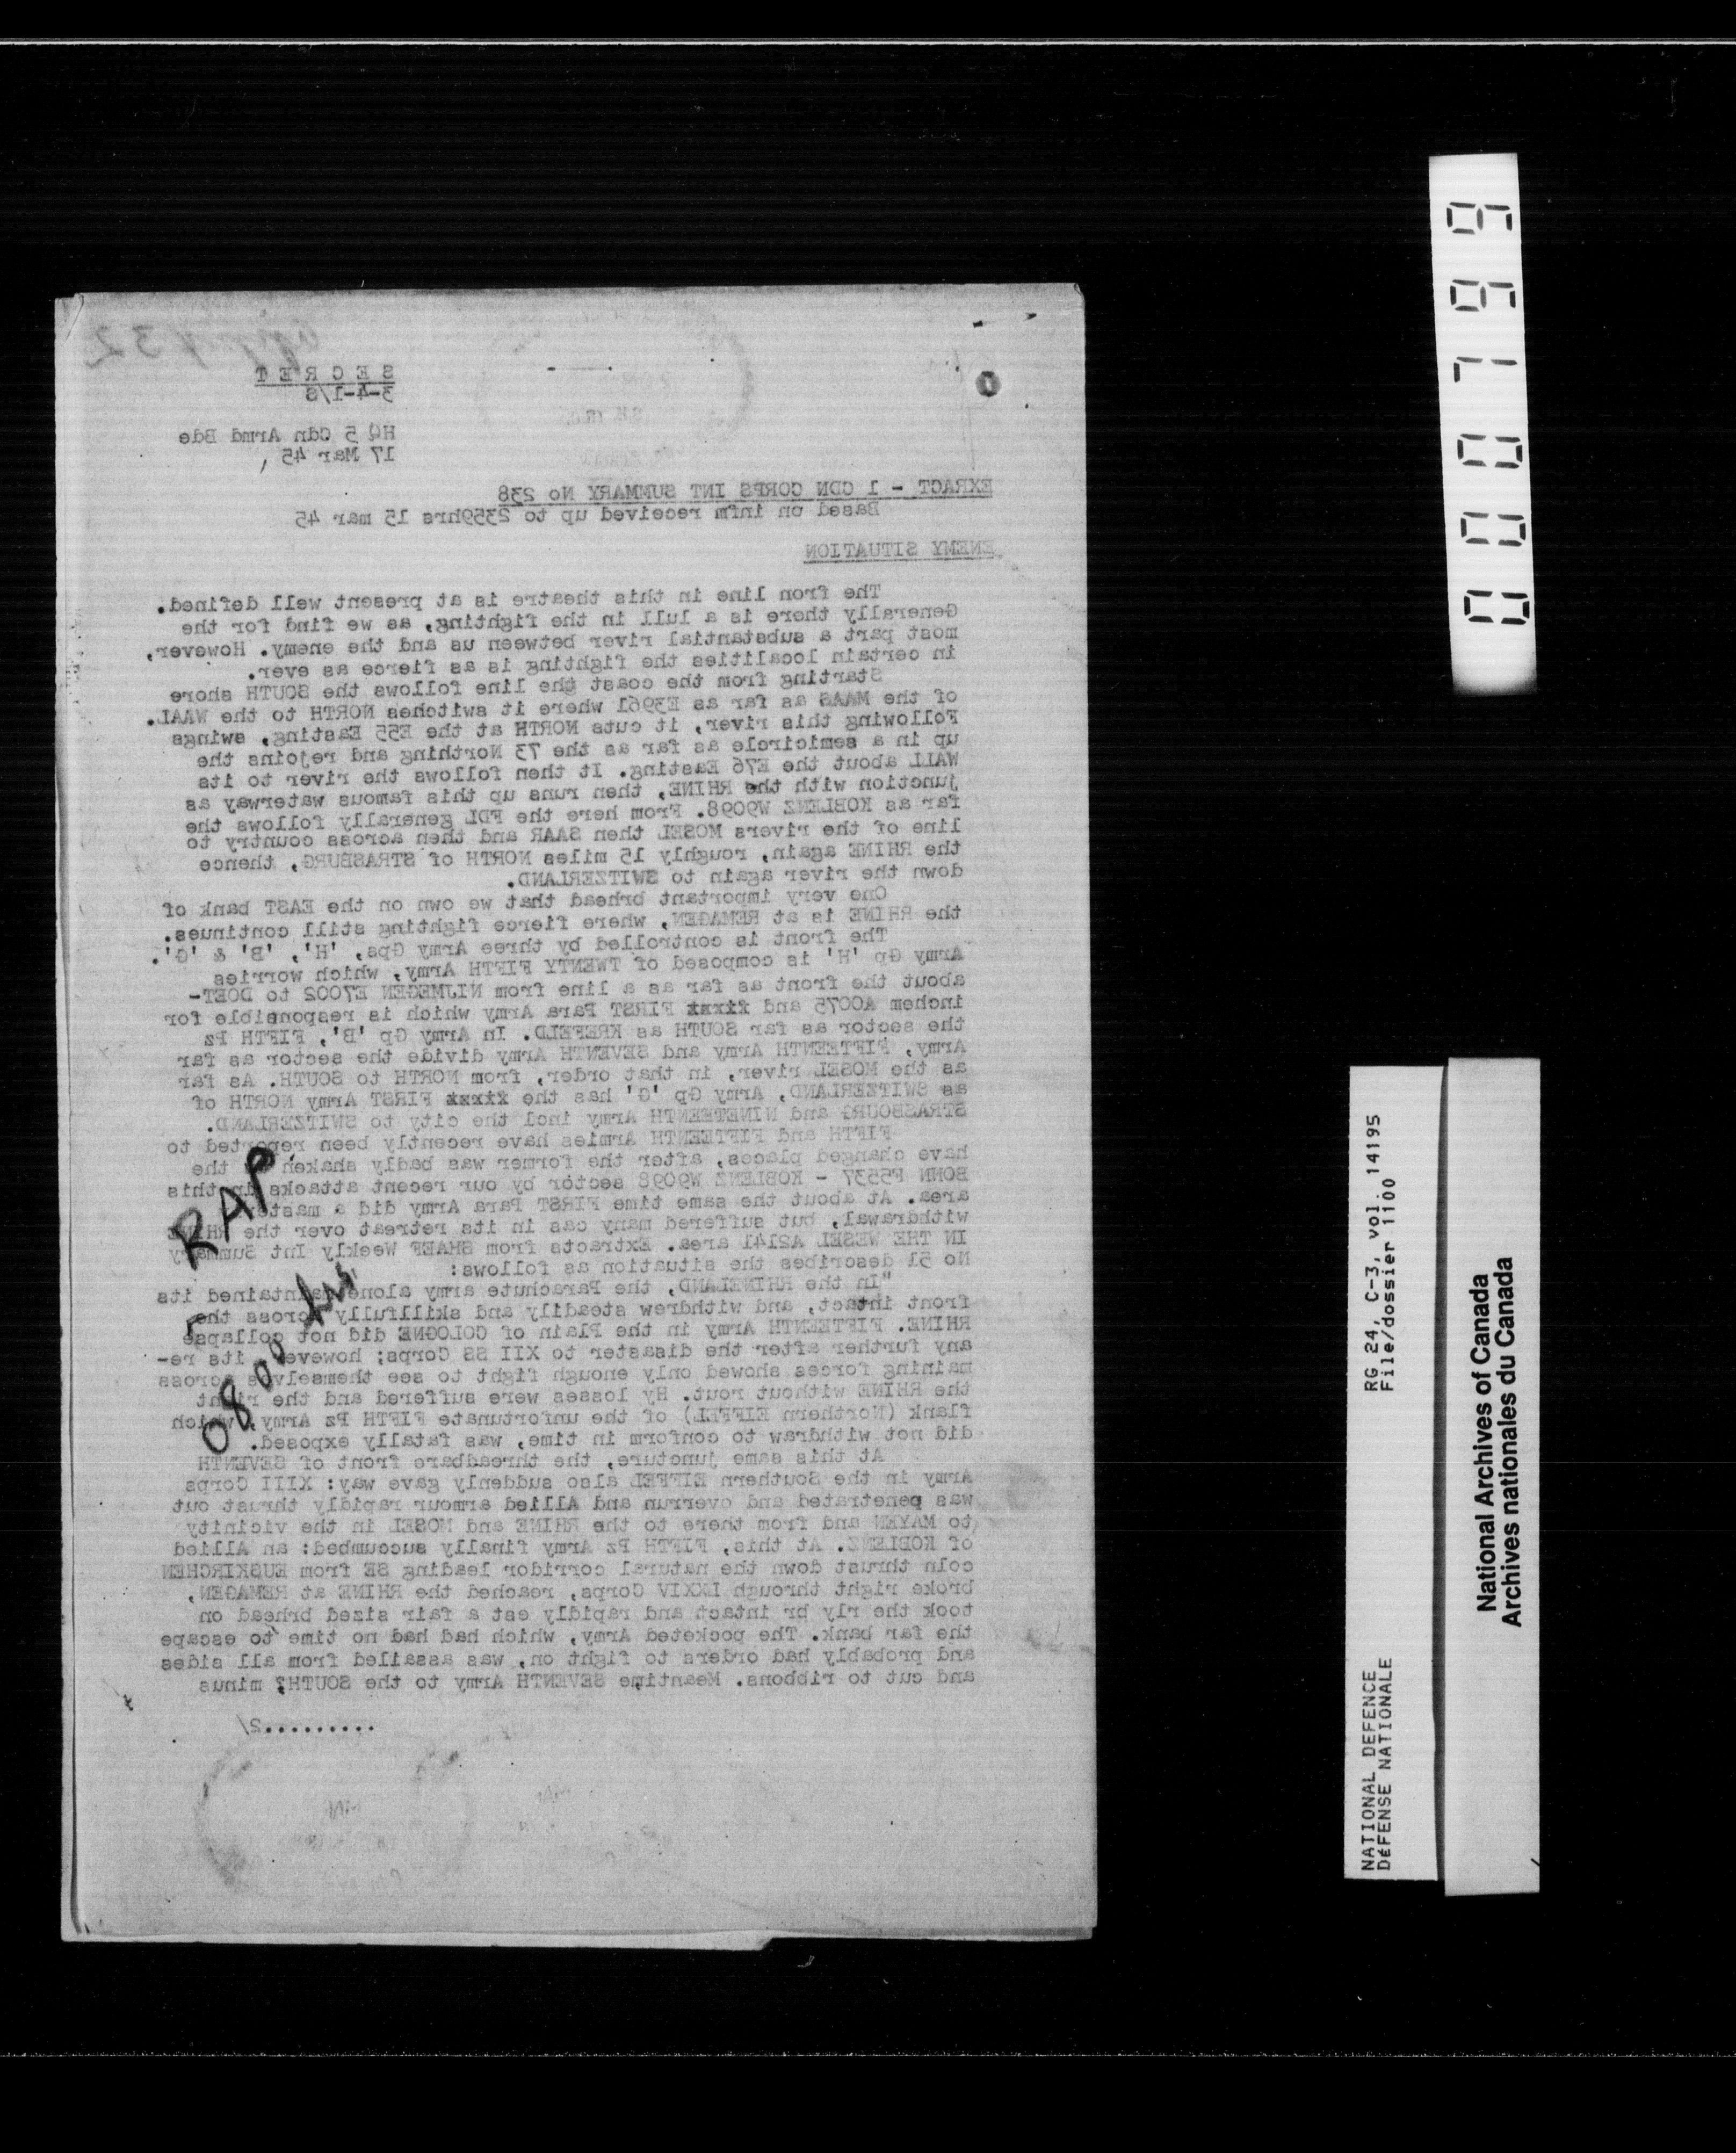 S E C R E T
3-4-1/S
HQ 5 Cdn Armd Bde
17 Mar 45
EXRACT - 1 CDN CORPS INT SUMMARY No 238
Based on infm received up to 2359hrs 15 mar 45
ENEMY SITUATION
The fron line in this theatre is at present well defined.
Generally there is a lull in the fighting, as we find for the
most part a substantial river between us and the enemy. However,
in certain localities the fighting is as fierce as ever.
Starting from the coast the line follows the SOUTH shore
of the MAAS as far as E3961 where it switches NORTH to the WAAL.
Following this river, it cuts NORTH at the E55 Easting, swings
up in a semicircle as far as the 73 Northing and rejoins the
WALL about the E76 Easting. It then follows the river to its
junction with the RHINE, then runs up this famous waterway as
far as KOBLENZ W9098. From here the FDL generally follows the
line of the rivers MOSEL then SAAR and then across country to
the RHINE again, roughly 15 miles NORTH of STRASBURG, thence
down the river again to SWITZERLAND.
One very important brhead that we own on the EAST bank of
the RHINE is at REMAGEN, where fierce fighting still continues.
The front is controlled by three Army Gps, 'H', 'B' & 'G'.
Army Gp 'H' is composed of TWENTY FIFTH Army, which worries
about the front as far as a line from NIJMEGEN E7002 to DOET-
inchem A0075 and first FIRST Para Army which is responsible for
the sector as far SOUTH as KREFELD. In Army Gp 'B', FIFTH Pz
Army, FIFTEENTH Army and SEVENTH Army divide the sector as far
as the MOSEL river, in that order, from NORTH to SOUTH. As far
as SWITZERLAND, Army Gp 'G' has the first FIRST Army NORTH of
STRASBOURG and NINETEENTH Army incl the city to SWITZERLAND.
FIFTH and FIFTEENTH Armies have recently been reported to
have changed places, after the former was badly shaken in the
BONN F5537 - KOBLENZ W9098 sector by our recent attacks in this
area. At about the same time FIRST Para Army did a
withdrawal, but suffered many cas in its retreat over the RHINE
IN THE WESEL A2141 area. Extracts from SHAEF Weekly Int Summary
No 51 describes the situation as follows:
"In the RHINELAND, the Parachute army alone maintained its
front intact, and withdrew steadily and skillfully across the
RHINE. FIFTEENTH Army in the Plain of COLOGNE did not collapse
any further after the disaster to XII SS Corps; however, its re-
maining forces showed only enough fight to see themselves across
the RHINE without rout. Hy losses were suffered and the right
flank (Northern EIFFEL) of the unfortunate FIFTH Pz Army, which
did not withdraw to conform in time, was fatally exposed.
At this same juncture, the threadbare front of SEVENTH
Army in the Southern EIFFEL also suddenly gave way: XIII Corps
was penetrated and overrun and Allied armour rapidly thrust out
to MAYEN and from there to the RHINE and MOSEL in the vicinity
of KOBLENZ. At this, FIFTH Pz Army finally succumbed: an Allied
coln thrust down the natural corridor leading SE from EUSKIRCHEN
broke right through LXXIV Corps, reached the RHINE at REMAGEN,
took the rly br intact and rapidly est a fair sized brhead on
the far bank. The pocketed Army, which had had no time to escape
and probably had orders to fight on, was assailed from all sides
and cut to ribbons. Meantime SEVENTH Army to the SOUTH, minus
.........2/
RAP
0800 hrs
0000799
RG 24, C-3, vol. 14195
File/dossier 1100
NATIONAL DEFENCE
DÉFENSE NATIONALE
National Archives of Canada
Archives nationales du Canada